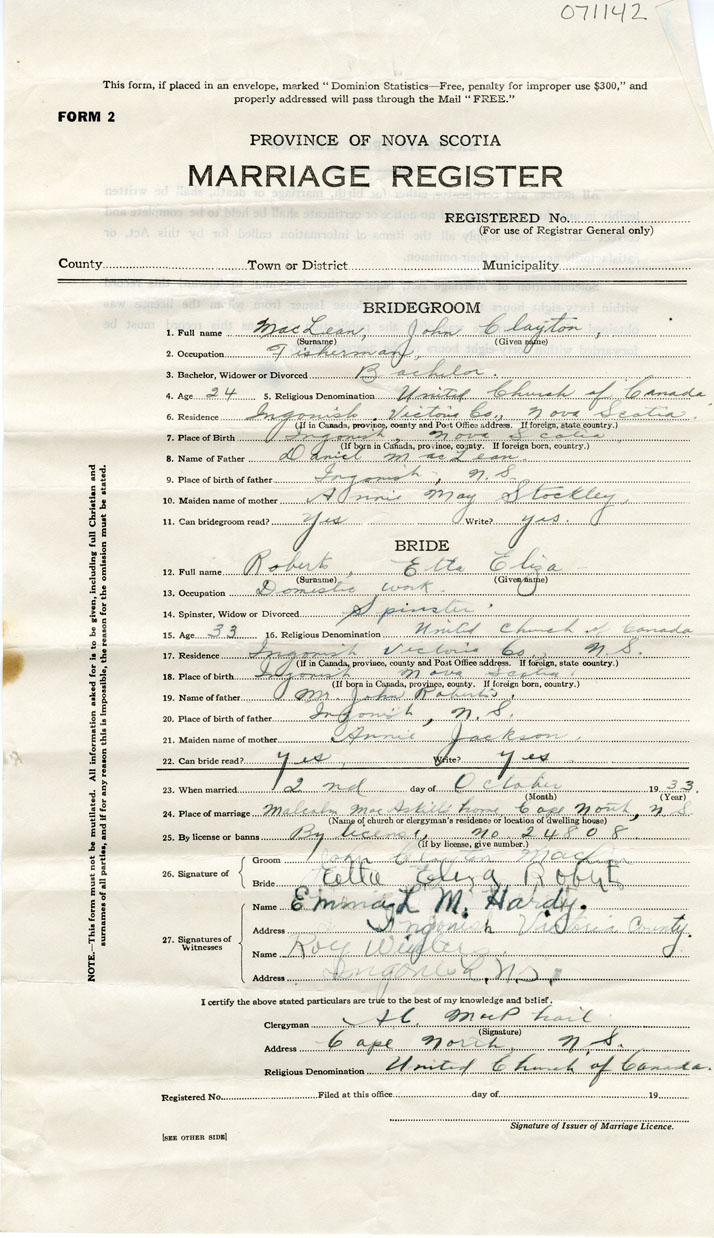 071142
This form, if placed in an envelope, marked "Dominion Statistics—Free, penalty for improper use $300," and
properly addressed will pass through the Mail "FREE."
FORM 2
PROVINCE OF NOVA SCOTIA
MARRIAGE REGISTER
REGISTERED No.
(For use of Registrar General only)
County Town or District Municipality
BRIDEGROOM
1. Full name MacLean, John Clayton,
(Surname) (Given name)
2. Occupation Fisherman,
3. Bachelor, Widower or Divorced Bachelor.
4. Age 24 5. Religious Denomination United Church of Canada,
6. Residence Ingonish, Victoria Co., Nova Scotia.
(If in Canada, province, county and Post Office address. If foreign, state country.)
7. Place of Birth Ingonish, Nova Scotia
(If born in Canada, province, county. If foreign born, country.)
8. Name of Father Daniel MacLean
9. Place of birth of father Ingonish, N.S.
10. Maiden name of mother Annie May Stockley,
11. Can bridegroom read? Yes Write? yes.
BRIDE
12. Full name Roberts, Etta Eliza
(Surname) (Given name)
13. Occupation Domestic work.
14. Spinster, Widow or Divorced Spinster.
15. Age 33 16. Religious Denomination United Church of Canada
17. Residence Ingonish Victoria Co., N.S.
(If in Canada, province, county and Post Office address. If foreign, state country.)
18. Place of birth Ingonish Nova Scotia.
(If born in Canada, province, county. If foreign born, country.)
19. Name of father Mr. John Roberts.
20. Place of birth of father Ingonish, N.S.
21. Maiden name of mother Annie Jackson.
22. Can bride read? yes, Write? yes
23. When married 2nd day of October 1933.
(Month) (Year)
24. Place of marriage Malcolm MacAskill's home, Cape North, N.S.
(Name of church or clergyman's residence or location of dwelling house)
25. By license or banns By license, no 24808
(If by license, give number.)
26. Signature of
Groom John Clayton MacLean
Bride Etta Eliza Roberts
27. Signatures of Witnesses
Name Emma L M. Hardy.
Address Ingonish Victoria County.
Name Roy
Address Ingonish, N.S.
I certify the above stated particulars are true to the best of my knowledge and belief.
Clergyman A.C. MacPhail
(Signature)
Address Cape North, N.S.
Religious Denomination United Church of Canada.
Registered No. Filed at this office day of 19
Signature of Issuer of Marriage Licence.
[SEE OTHER SIDE]
NOTE.—This form must not be mutilated. All information asked for is to be given, including full Christian and
surnames of all parties, and if for any reason this is impossible, the reason for the omission must be stated.